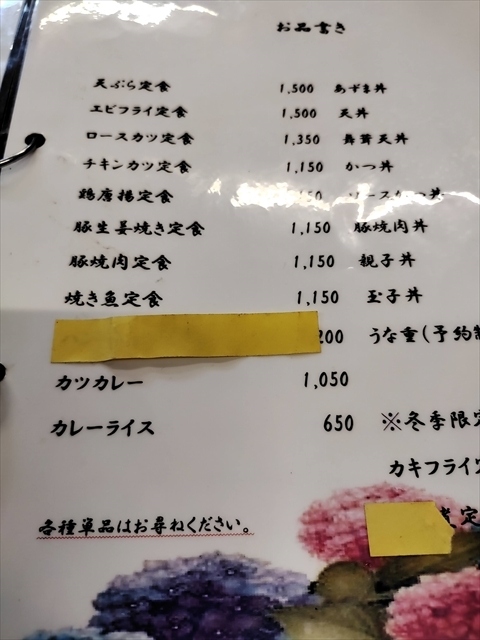 お品書き
天ぷら定食 1,500 あずま丼
エビフライ定食 1,500 天丼
ロースカツ定食 1,350 舞茸天丼
チキンカツ定食 1,150 かつ丼
鶏唐揚定食
豚生姜焼き定食 1,150 豚焼肉丼
豚焼肉定食 1,150 親子丼
焼き魚定食 1,150 玉子丼
200 うな重(予約
カツカレー 1,050
カレーライス 650 ※冬季限定
カキフライ
定
各種単品はお尋ねください。